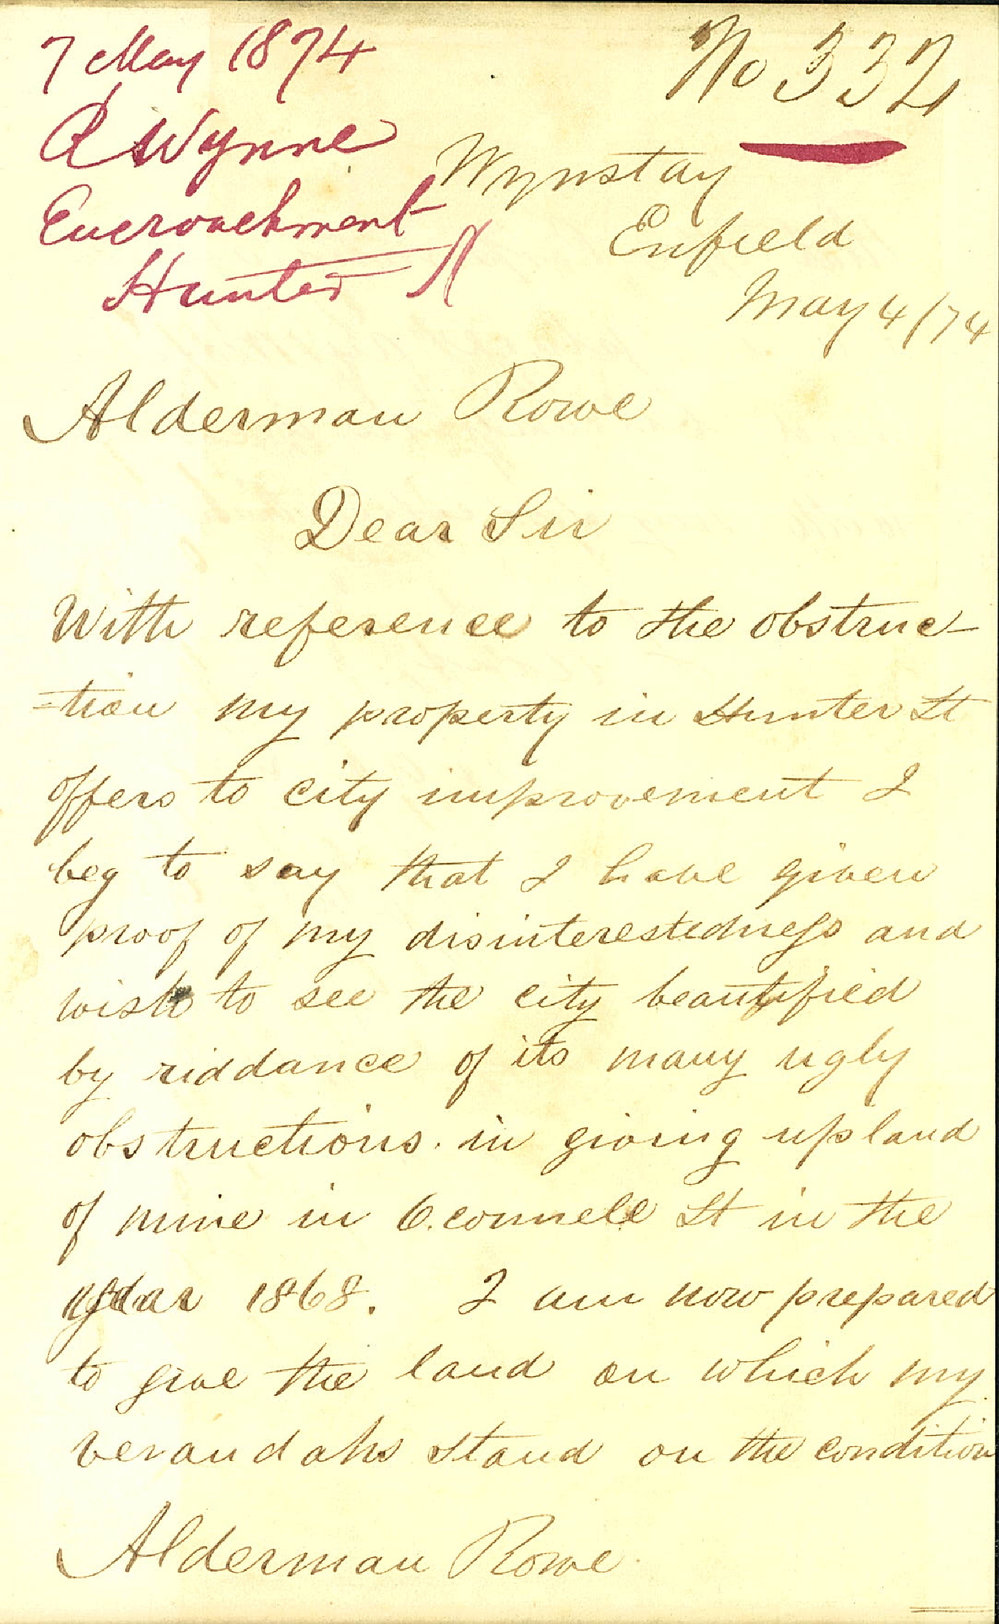 7 May 1874
No 332
R Wynne
Encroachment
Hunter St
Wynstay
Enfield
May 4/74
Alderman Rowe
Dear Sir
With reference to the obstruc-
=tion my property in Hunter St
offers to city improvement I
beg to say that I have given
proof of my disinterestedness and
wish to see the city beautified
by riddance of its many ugly
obstructions. in giving up land
of mine in O.connell St in the
year 1868. I am now prepared
to give the land on which my
verandahs stand on the condition
Alderman Rowe.